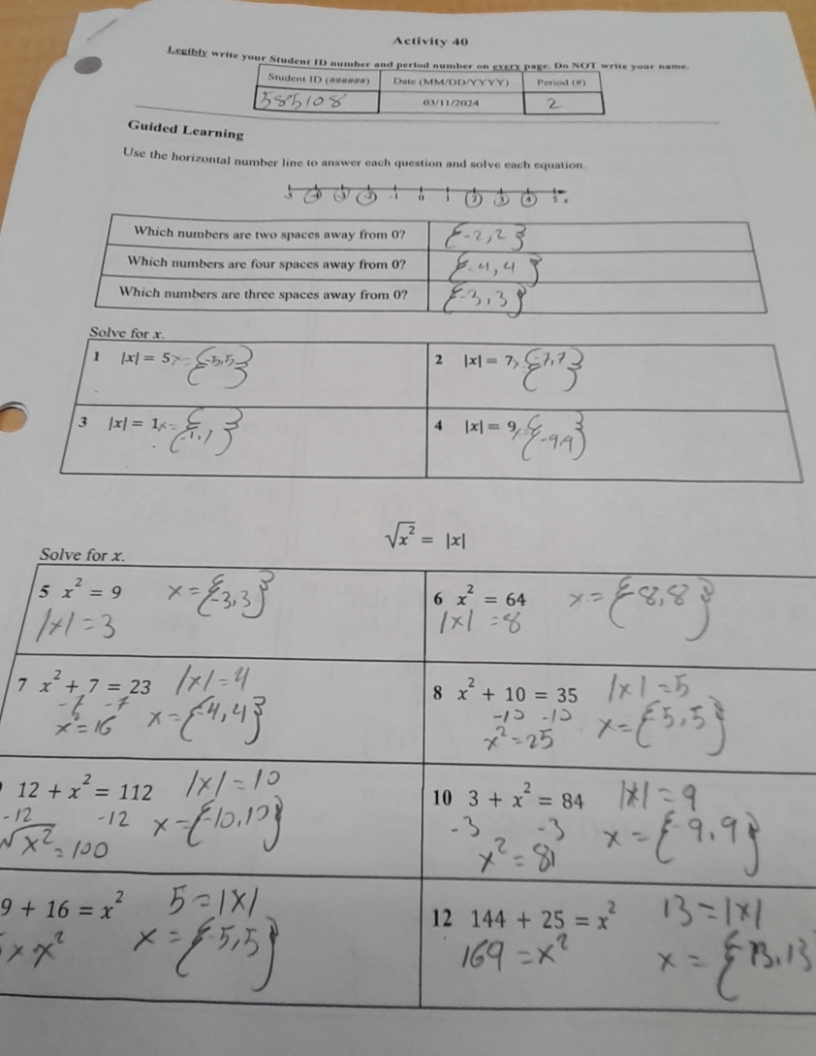 Activity 40
Legibly write your Student ID number and period number on every page. Do NOT write your name.
Student ID (######) Date (MM/DD/YYYY) Period (#)
585108 03/11/2024 2
Guided Learning
Use the horizontal number line to answer each question and solve each equation.
-5 -4 -3 -2 -1 0 1 2 3 4 5 x
Which numbers are two spaces away from 0? {-2,2}
Which numbers are four spaces away from 0? {-4,4}
Which numbers are three spaces away from 0? {-3,3}
Solve for x.
1 |x| = 5 x = {-5,5}
2 |x| = 7, {-7,7}
3 |x| = 1 x = {-1,1}
4 |x| = 9, {-9,9}
√x² = |x|
Solve for x.
5 x² = 9 x = {-3,3}
|x| = 3
6 x² = 64 x = {-8,8}
|x| = 8
7 x² + 7 = 23 |x| = 4
-7 -7
x² = 16 x = {-4,4}
8 x² + 10 = 35 |x| = 5
-10 -10 x = {-5,5}
x² = 25
12 + x² = 112 |x| = 10
-12 -12 x = {-10,10}
√x² = 100
10 3 + x² = 84 |x| = 9
-3 -3 x = {-9,9}
x² = 81
9 + 16 = x² 5 = |x|
x² x = {-5,5}
12 144 + 25 = x² 13 = |x|
169 = x² x = {-13,13